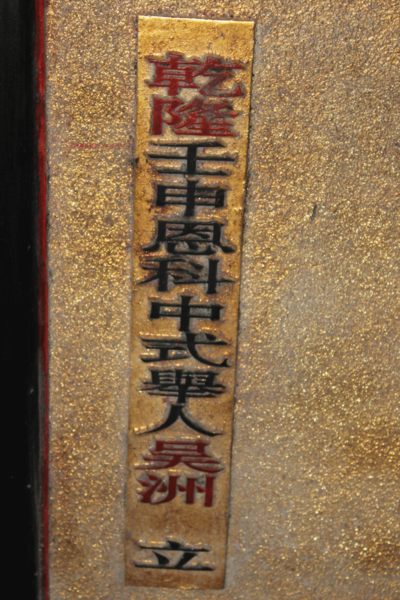 乾隆壬申恩科中式舉人吳洲 立